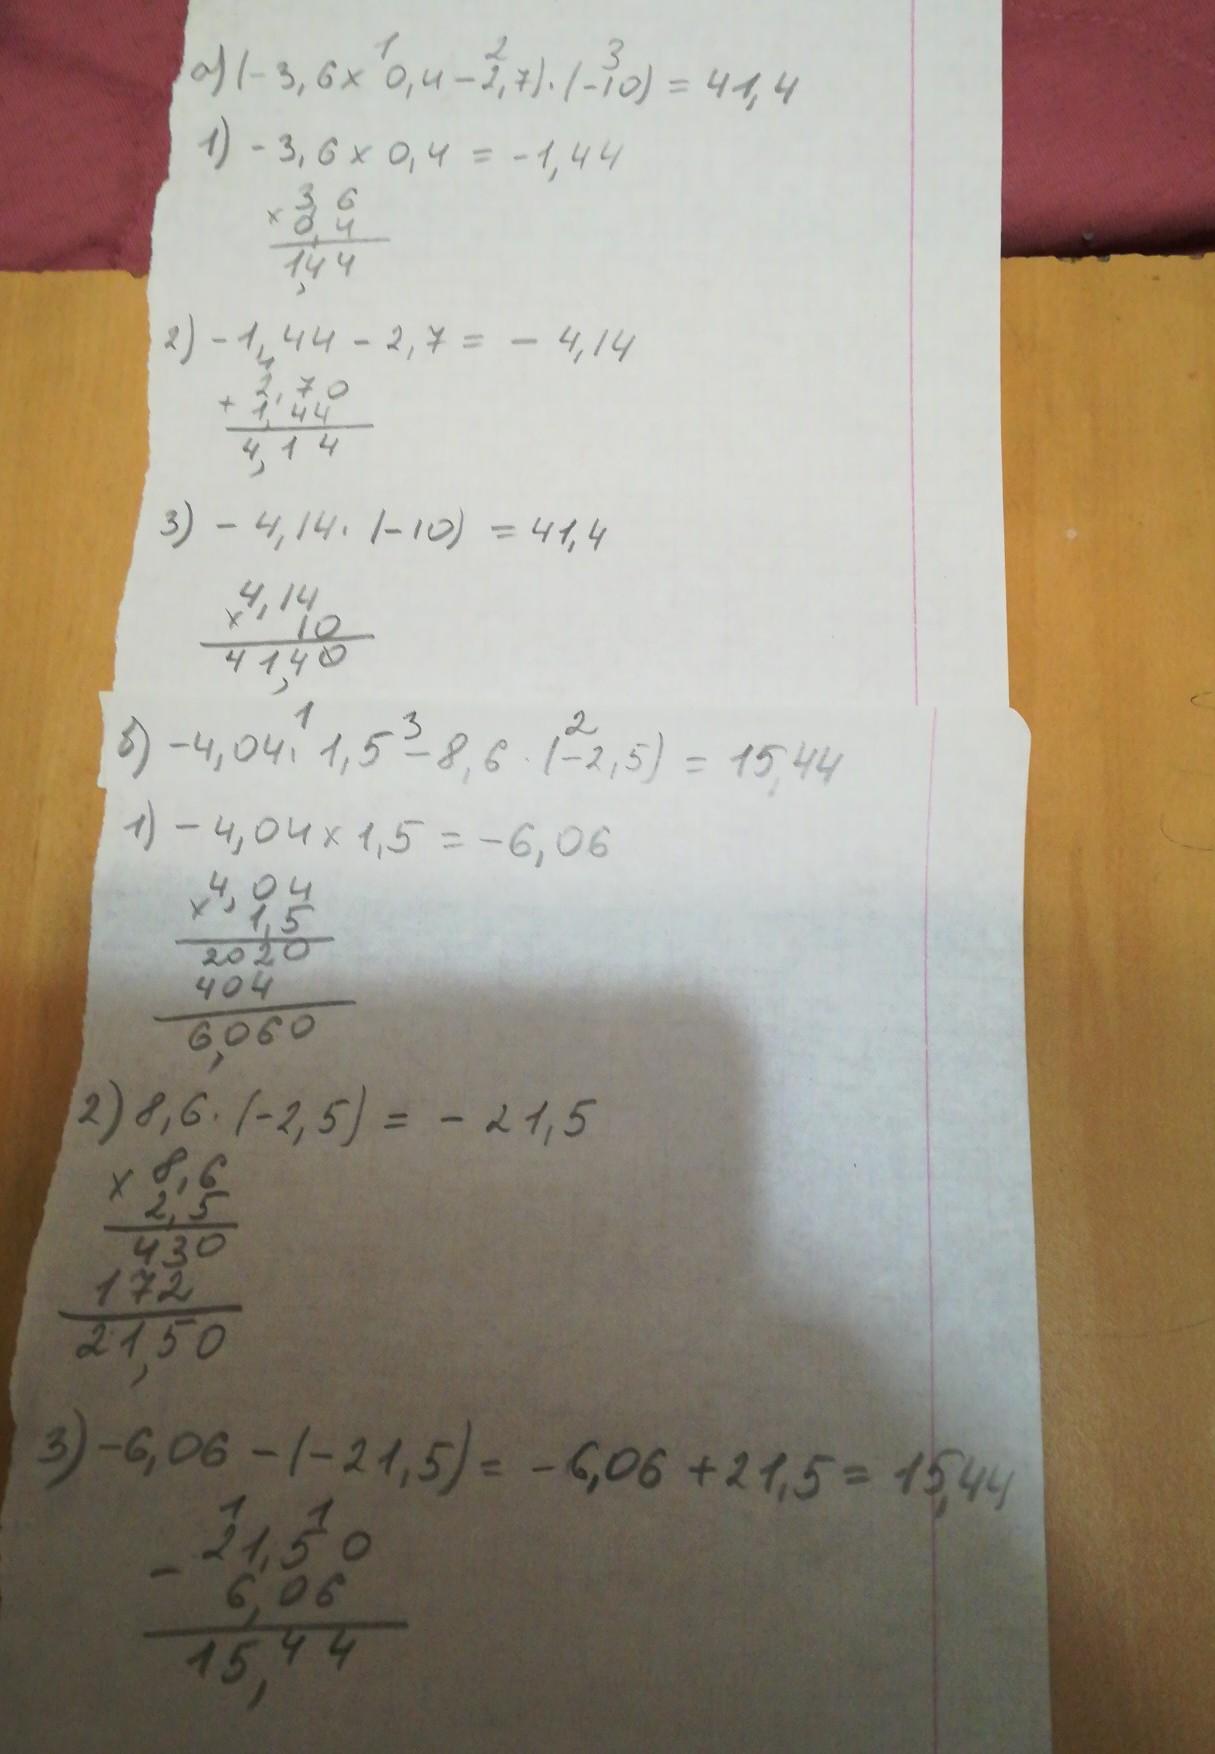 1 2 3
а) (-3,6 × 0,4 - 2,7) · (-10) = 41,4
1) -3,6 × 0,4 = -1,44
× 3,6
0,4
1,44
2) -1,44 - 2,7 = - 4,14
1
+ 2,70
1,44
4,14
3) - 4,14 · (-10) = 41,4
× 4,14
10
41,40
1 3 2
б) -4,04 · 1,5 - 8,6 · (-2,5) = 15,44
1) - 4,04 × 1,5 = -6,06
× 4,04
1,5
2020
404
6,060
2) 8,6 · (-2,5) = - 21,5
× 8,6
2,5
430
172
21,50
3) -6,06 - (-21,5) = -6,06 + 21,5 = 15,44
1 1
- 21,50
6,06
15,44